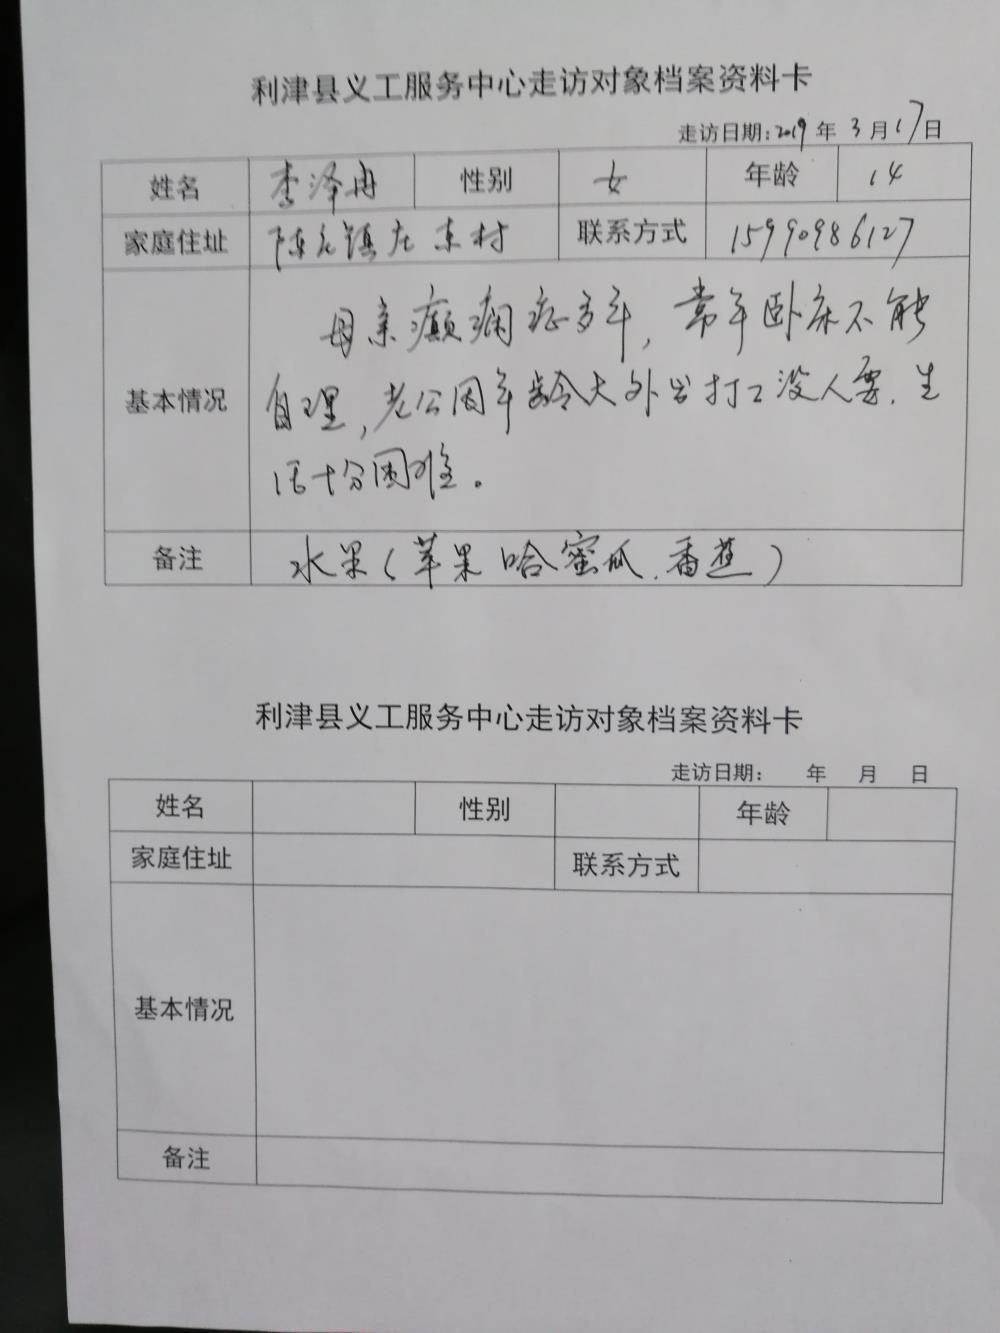 利津县义工服务中心走访对象档案资料卡
走访日期:2019年3月17日
姓名 李泽冉 性别 女 年龄 14
家庭住址 陈庄镇左东村 联系方式 15990986127
母亲癫痫症多年,常年卧床不能
基本情况 自理,老公因年龄大外出打工没人要,生
活十分困难。
备注 水果(苹果 哈蜜瓜、香蕉)
利津县义工服务中心走访对象档案资料卡
走访日期: 年 月 日
姓名 性别 年龄
家庭住址 联系方式
基本情况
备注